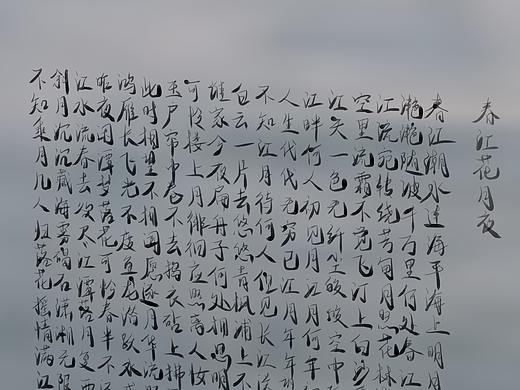 春江花月夜
春江潮水连海平海上明月
滟滟随波千万里何处春江
江流宛转绕芳甸月照花林
空里流霜不觉飞汀上白沙
江天一色无纤尘皎皎空中
江畔何人初见月江月何年
人生代代无穷已江月年年
不知江月待何人但见长江
白云一片去悠悠青枫浦上不
谁家今夜扁舟子何处相思明
可怜楼上月徘徊应照离人妆
玉户帘中卷不去捣衣砧上拂
此时相望不相闻愿逐月华流
鸿雁长飞光不度鱼龙潜跃水
昨夜闲潭梦落花可怜春半不
江水流春去欲尽江潭落月复西
斜月沉沉藏海雾碣石潇湘无限
不知乘月几人归落花摇情满江